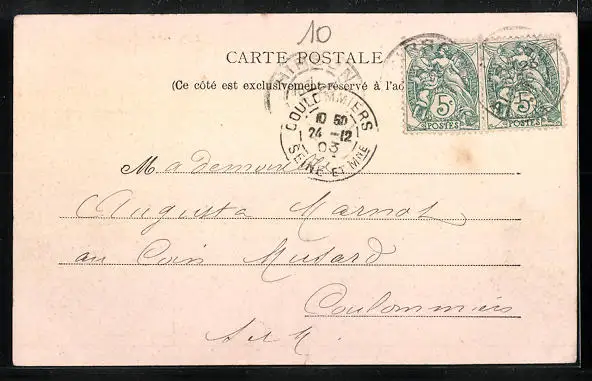 10
CARTE POSTALE
(Ce côté est exclusivement réservé à l'ad
5c 5c
POSTES POSTES
COULOMMIERS
10 50
24 -12
03
SEINE ET MNE
Mademoiselle
Augusta Marnot
au Coin Musard
Coulommiers